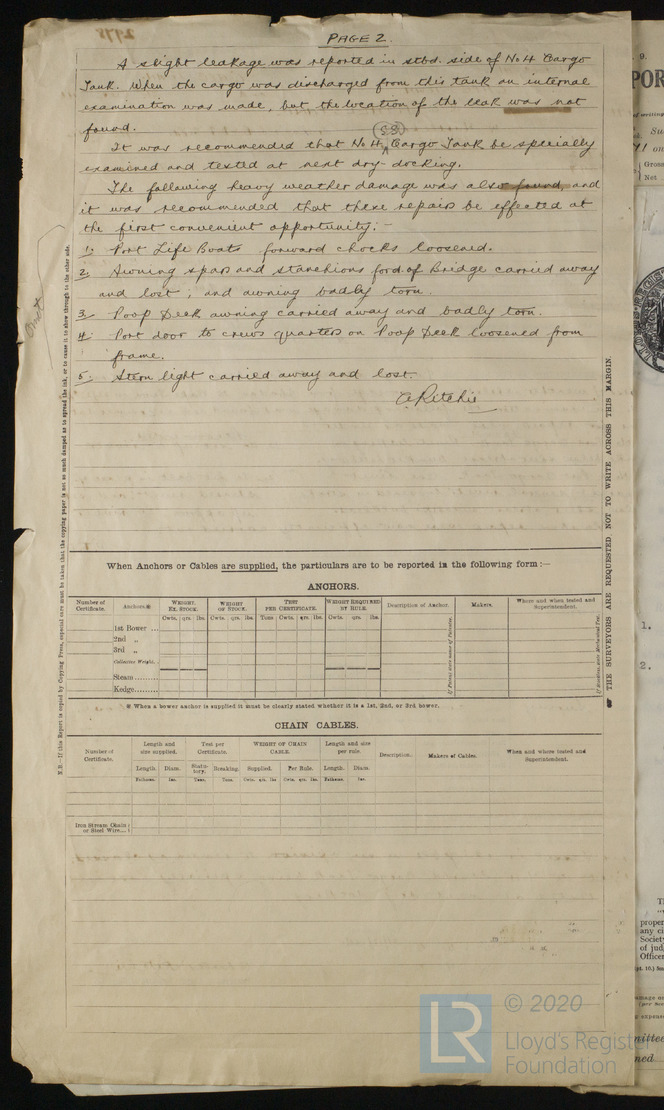 2978
PAGE 2.
A slight leakage was reported in stbd. side of No 4 Cargo
Tank. When the cargo was discharged from this tank an internal
examination was made, but the location of the leak was not
found.
It was recommended that No 4 (S.S) Cargo Tank be specially
examined and tested at next dry-docking.
The following heavy weather damage was also found, and
it was recommended that these repairs be effected at
the first convenient opportunity:-
1. Port Life Boats forward chocks loosened.
2. Awning spars and stanchions ford. of Bridge carried away
and lost; and awning badly torn.
3. Poop Deck awning carried away and badly torn.
4. Port door to crews quarters on Poop Deck loosened from
frame.
5. Stern light carried away and lost.
A Ritchie
N.B.—If this Report is copied by Copying Press, especial care must be taken that the copying paper is not so much damped as to spread the ink, or to cause it to show through to the other side.
THE SURVEYORS ARE REQUESTED NOT TO WRITE ACROSS THIS MARGIN.
When Anchors or Cables are supplied, the particulars are to be reported in the following form:—
ANCHORS.
Number of Certificate. Anchors※ WEIGHT. EX. STOCK. WEIGHT OF STOCK. TEST PER CERTIFICATE. WEIGHT REQUIRED BY RULE. Description of Anchor. Makers. Where and when tested and Superintendent.
Cwts. qrs. lbs. Cwts. qrs. lbs. Tons Cwts. qrs. lbs. Cwts. qrs. lbs.
1st Bower ...
2nd „
3rd „
Collective Weight.
Steam.........
Kedge.........
※ When a bower anchor is supplied it must be clearly stated whether it is a 1st, 2nd, or 3rd bower.
CHAIN CABLES.
Number of Certificate. Length and size supplied. Test per Certificate. WEIGHT OF CHAIN CABLE. Length and size per rule. Description. Makers of Cables. When and where tested and Superintendent.
Length. Diam. Statutory. Breaking. Supplied. Per Rule. Length. Diam.
Fathoms. Ins. Tons. Tons. Cwts. qrs. lbs. Cwts. qrs. lbs. Fathoms. Ins.
Iron Stream Chain
or Steel Wire...
LR
© 2020
Lloyd's Register
Foundation